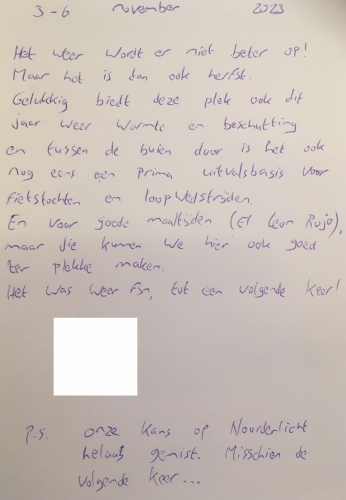 3-6 november 2023
Het weer wordt er niet beter op!
Maar het is dan ook herfst.
Gelukkig biedt deze plek ook dit
jaar weer warmte en beschutting
en tussen de buien door is het ook
nog eens een prima uitvalsbasis voor
fietstochten en loopwedstrijden.
En voor goede maaltijden (El Leon Rojo),
maar die kunnen we hier ook goed
ter plekke maken.
Het was weer fijn, tot een volgende keer!
P.S. onze kans op Noorderlicht
helaas gemist. Misschien de
volgende keer...